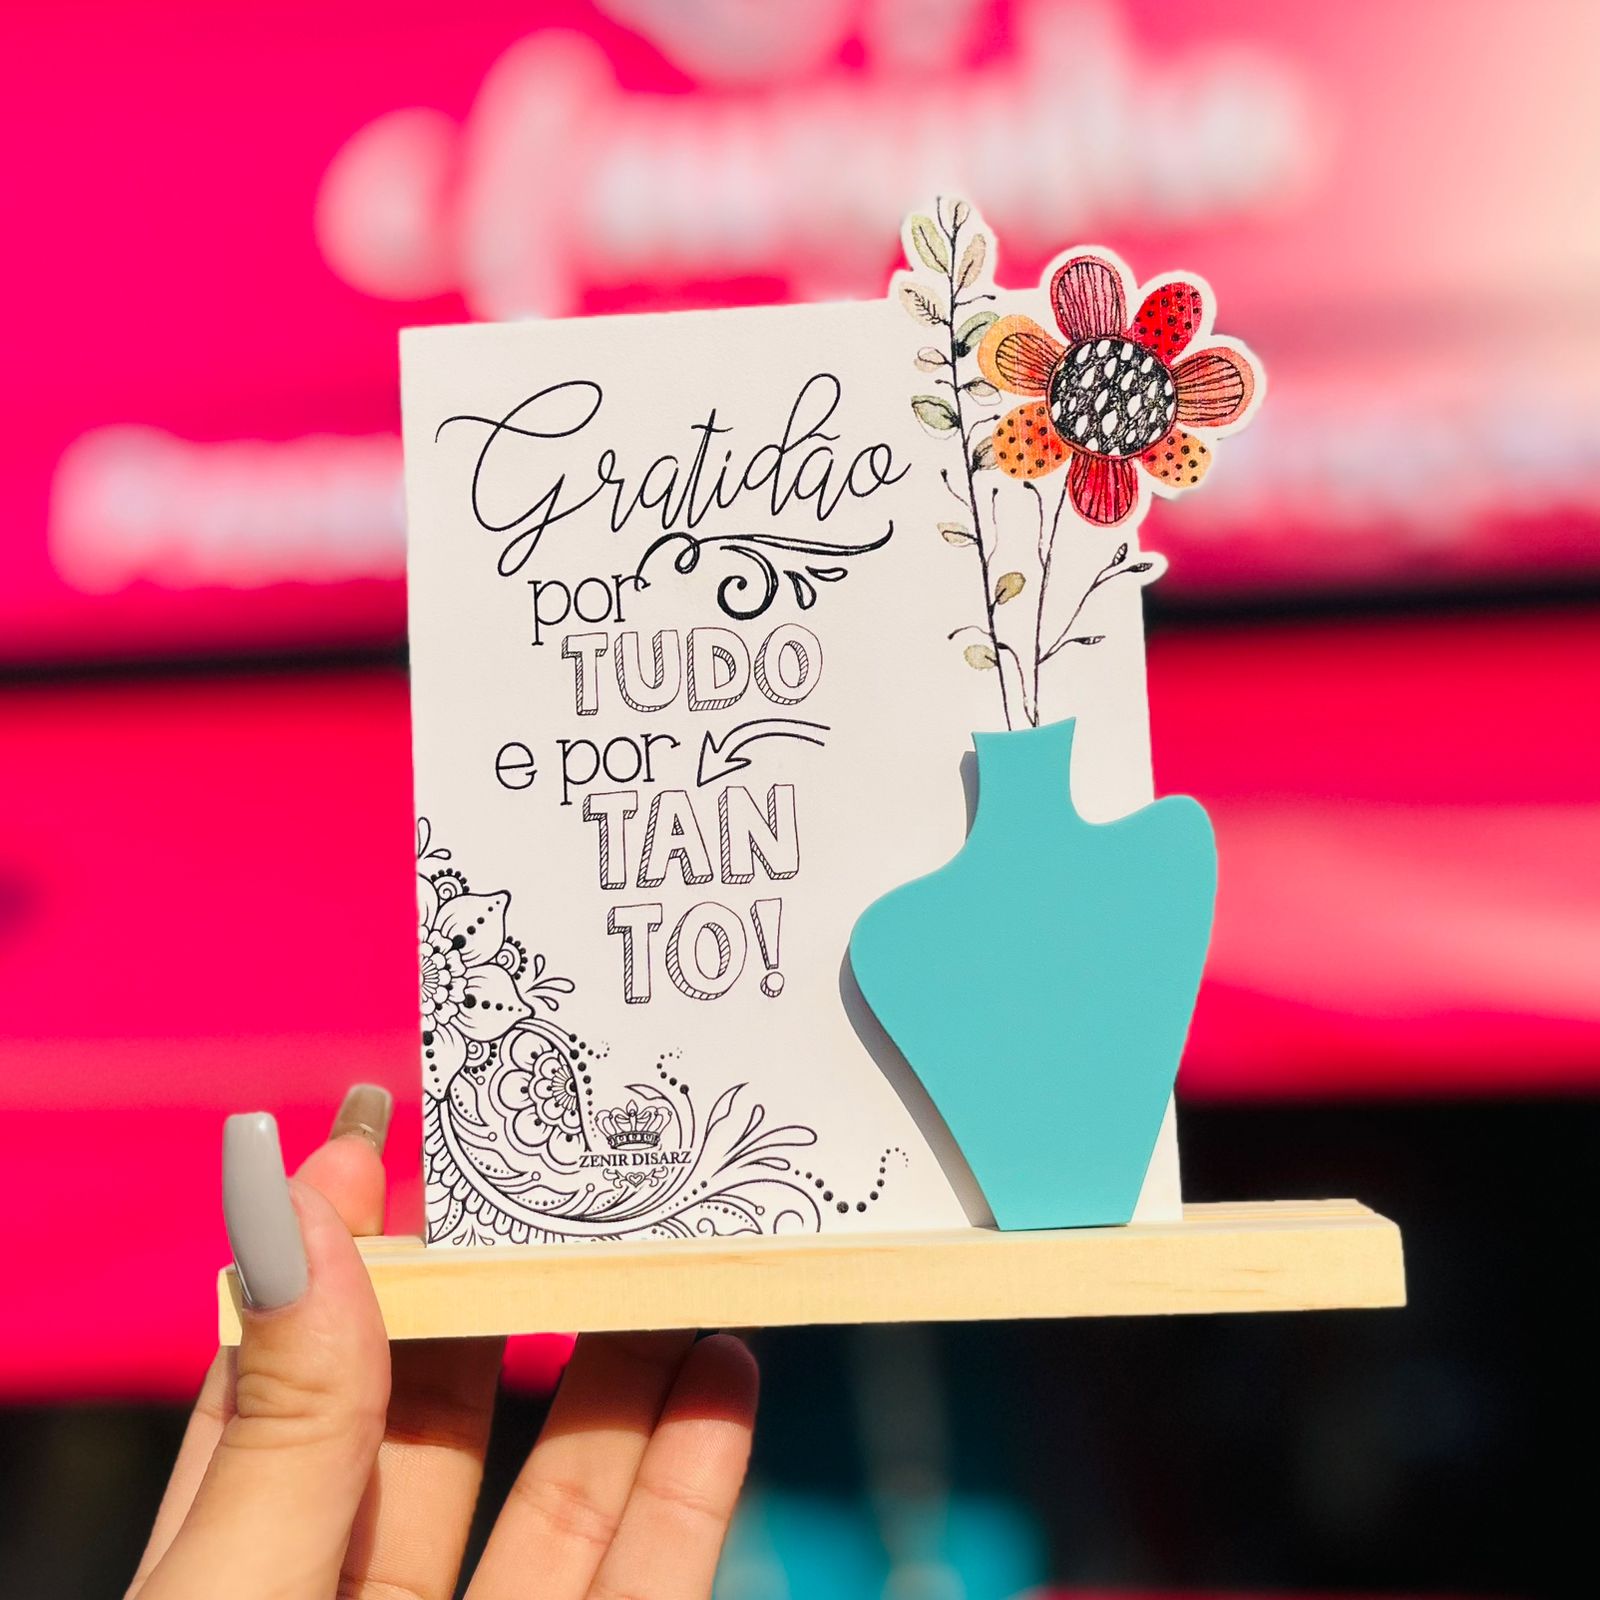 Gratidão
por
TUDO
e por
TAN
TO!
ZENIR DISARZ